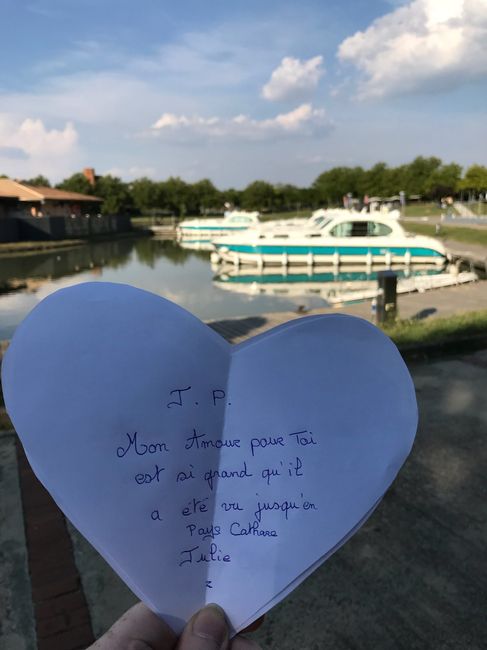 J. P.
Mon Amour pour Toi
est si grand qu'il
a été vu jusqu'en
Pays Cathare
Julie